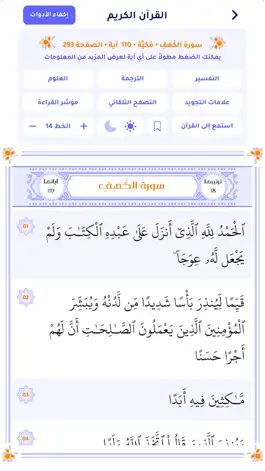 القرآن الكريم
إخفاء الأدوات
سورة الكهف • مَكيَّة • 110 آية • الصفحة 293
يمكنك الضغط مطولاً على أي آية لعرض المزيد من المعلومات
التفسير
الترجمة
العلوم
علامات التجويد
التصفح التلقائي
مؤشر القراءة
استمع إلى القرآن
+ الخط 14 −
ترتيبها
18
سورة الكهف
آياتها
110
01
ٱلْحَمْدُ لِلَّهِ ٱلَّذِىٓ أَنزَلَ عَلَىٰ عَبْدِهِ ٱلْكِتَٰبَ وَلَمْ
يَجْعَل لَّهُۥ عِوَجَا ۜ
02
قَيِّمًا لِّيُنذِرَ بَأْسًا شَدِيدًا مِّن لَّدُنْهُ وَيُبَشِّرَ
ٱلْمُؤْمِنِينَ ٱلَّذِينَ يَعْمَلُونَ ٱلصَّٰلِحَٰتِ أَنَّ لَهُمْ
أَجْرًا حَسَنًا
03
مَّٰكِثِينَ فِيهِ أَبَدًا
04
وَيُنذِرَ ٱلَّذِينَ قَالُوا۟ ٱتَّخَذَ ٱللَّهُ وَلَدًا